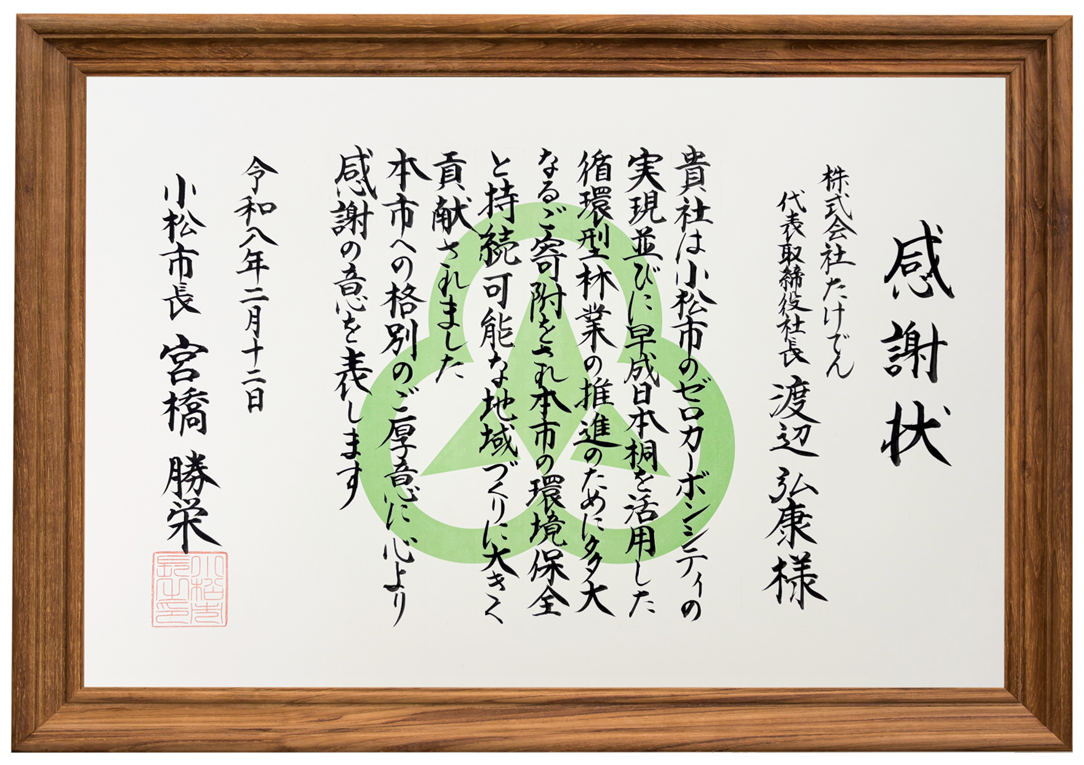 感謝状
株式会社たけでん
代表取締役社長 渡辺 弘康 様
貴社は小松市のゼロカーボンシティの
実現並びに早成日本桐を活用した
循環型林業の推進のために多大
なるご寄附をされ本市の環境保全
と持続可能な地域づくりに大きく
貢献されました
本市への格別のご厚意に心より
感謝の意を表します
令和八年二月十二日
小松市長 宮橋 勝栄
小松市
長之印